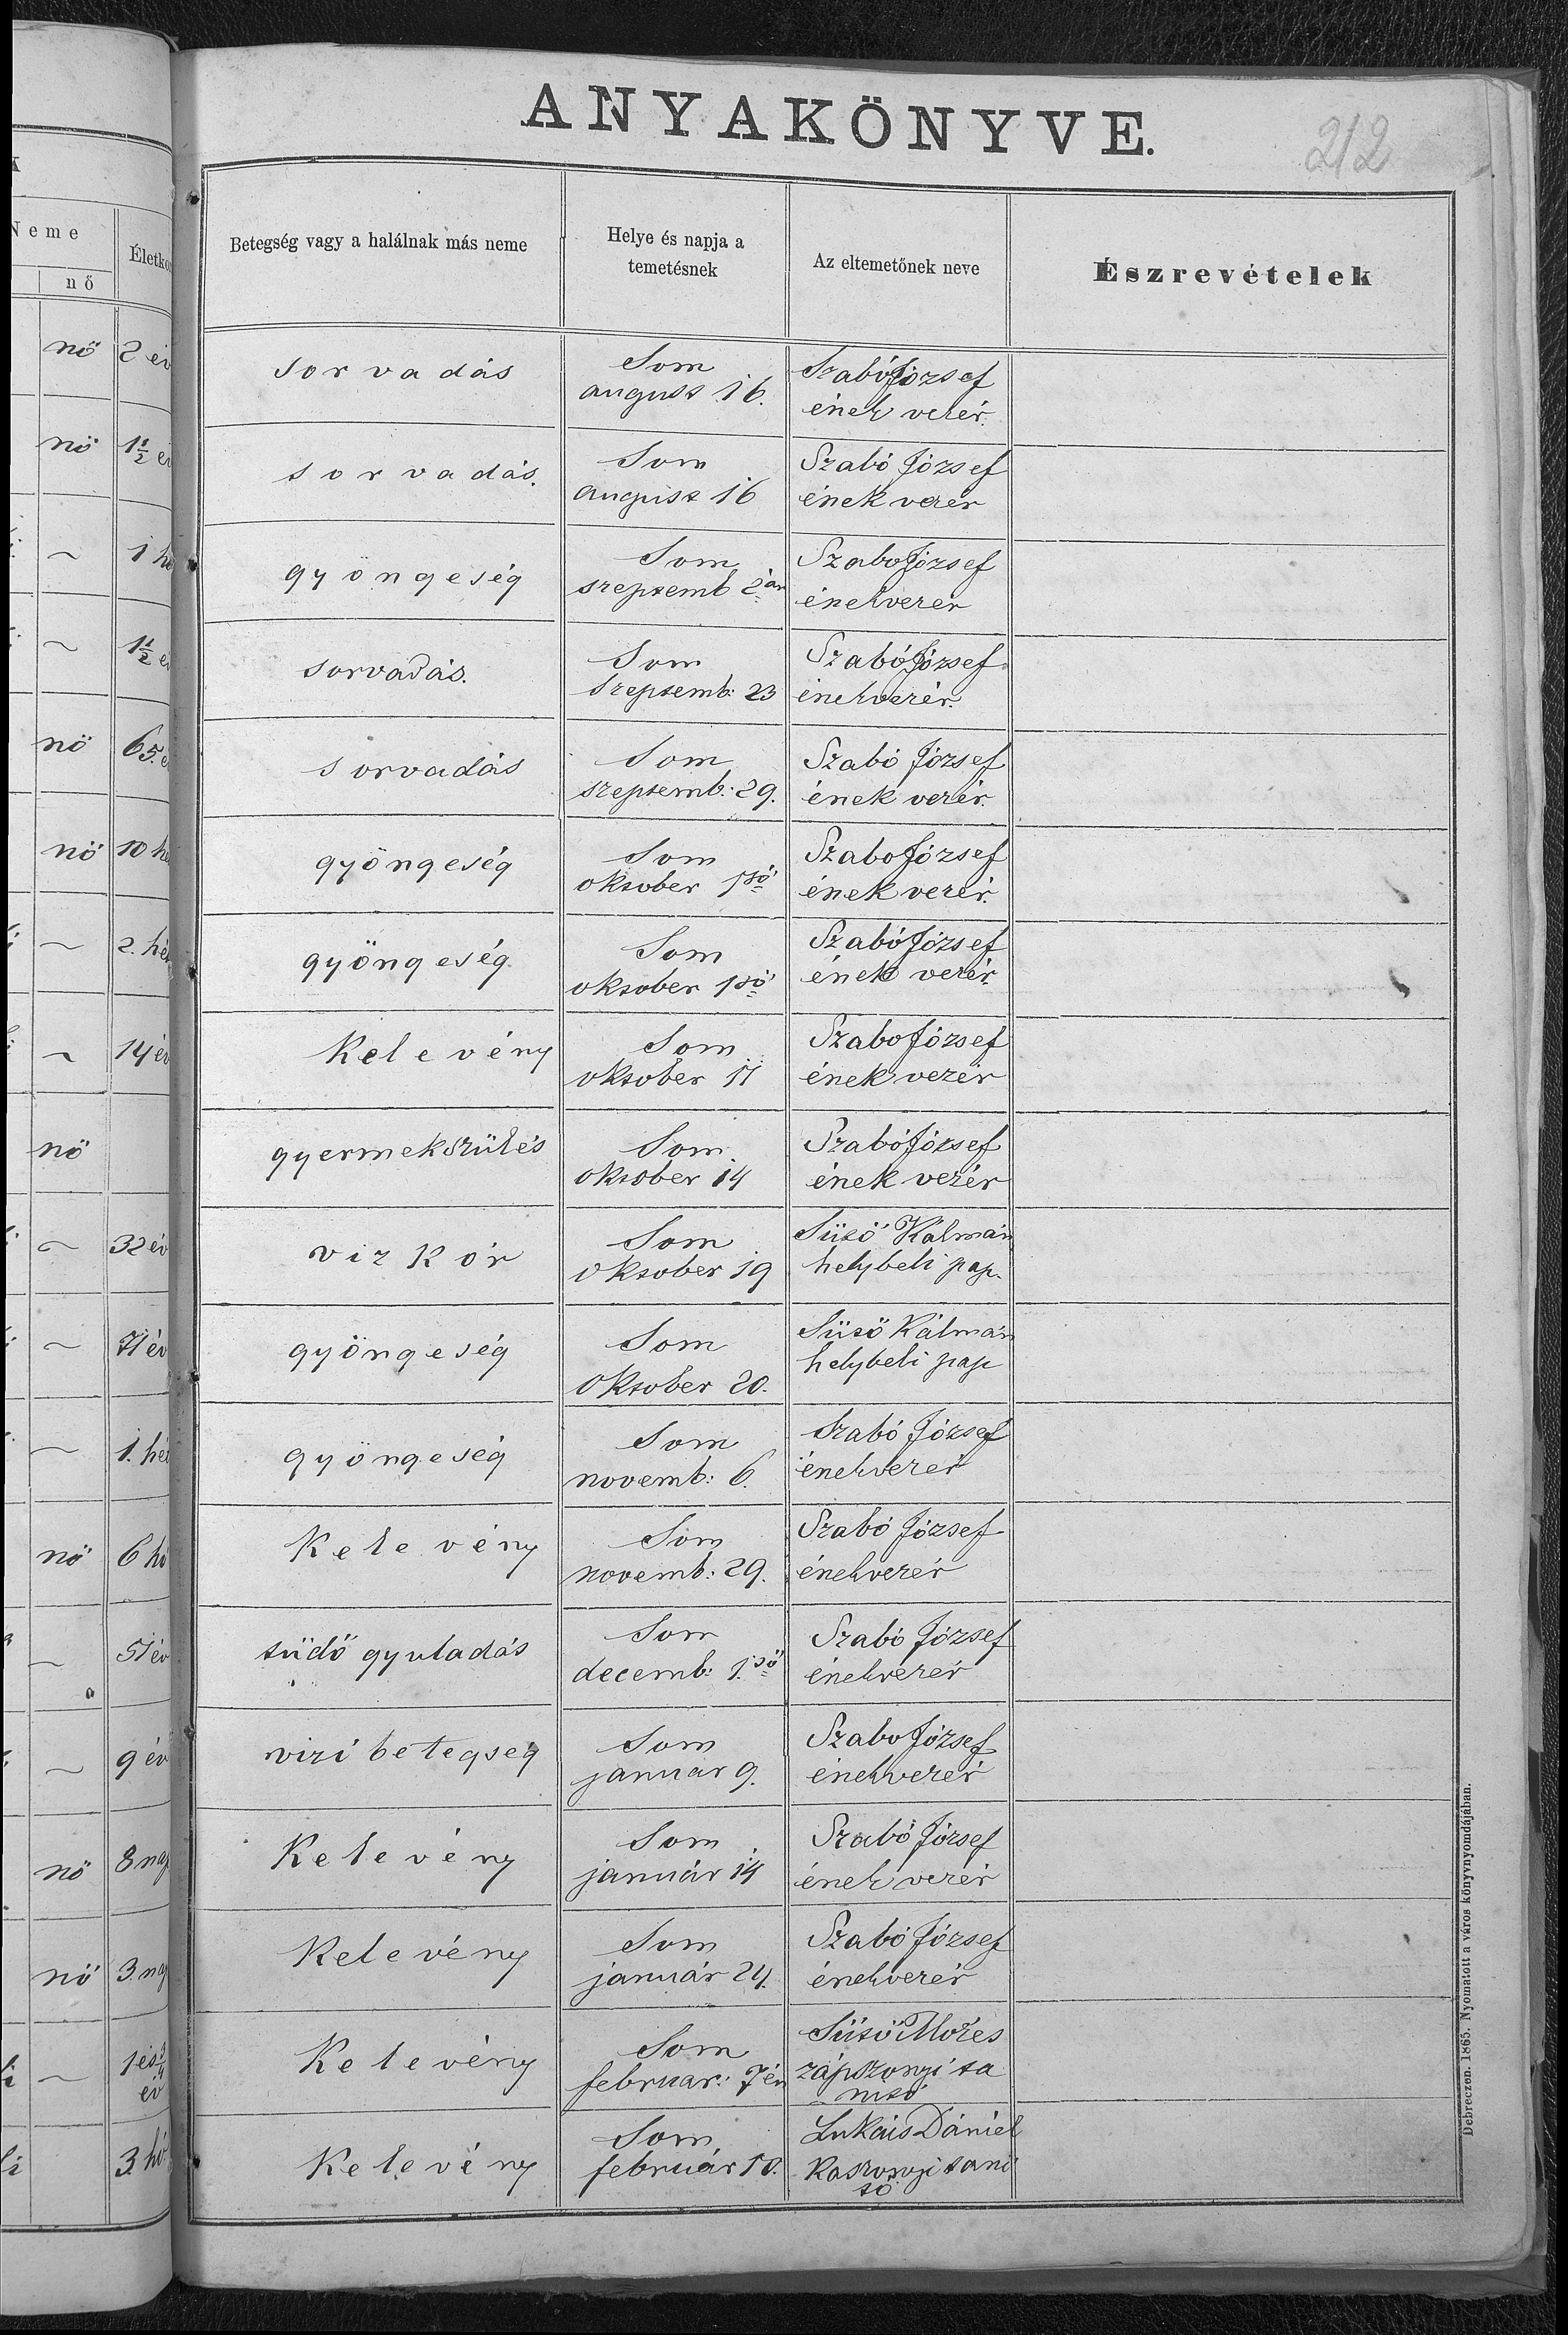 ANYAKÖNYVE.
212
Neme
Életko
nő
Betegség vagy a halálnak más neme
Helye és napja a
temetésnek
Az eltemetőnek neve
Észrevételek
nö 2 év
sorvadás
Som
august 16.
Szabó József
ének vezér.
nö 1½ é
sorvadás.
Som
august 16
Szabó József
ének vezér
~ 1 hó
gyöngeség
Som
szeptemb 2án
Szabo József
énekvezér
~ 1½ é
sorvadás.
Som
szeptemb: 23
Szabó József
énekvezér.
nö 65. é
sorvadás
Som
szeptemb: 29.
Szabó József
ének vezér.
nö 10 hé
gyöngeség
Som
oktober 1ső
Szabo József
ének vezér.
~ 2. hét
gyöngeség
Som
oktober 1ső
Szabó József
ének vezér.
~ 14 év
Kelevény
Som
oktober 11
Szabo József
ének vezér
nö
gyermekszülés
Som
oktober 14
Szabó József
ének vezér
~ 32 év
viz kór
Som
oktober 19
Sütő Kálmán
helybeli pap.
~ 71 év
gyöngeség
Som
Oktober 20.
Sütő Kálmán
helybeli pap
~ 1. hét
gyöngeség
Som
novemb: 6.
Szabó József
énekvezér
nö 6 hó
Kelevény
Som
novemb: 29.
Szabó József
énekvezér
~ 51 év
tüdő gyuladás
Som
decemb: 1.ső
Szabó József
énekvezér
~ 9 év
vizi betegseg
Som
januar 9.
Szabo József
énekvezér
nö 8 nap
Kelevény
Som
január 14
Szabó József
ének vezér
nö 3. nap
Kelevény
Som
január 24.
Szabó József
énekvezér
~ 1 és ¾
év
Kelevény
Som
februar: 7én
Sütő Mozes
zápszonyi ta
nitó
3. hó
Kelevény
Som
február 10.
Lukáis Dániel
Kaszonyi tani
tó
Debreczen. 1865. Nyomatott a város könyvnyomdájában.